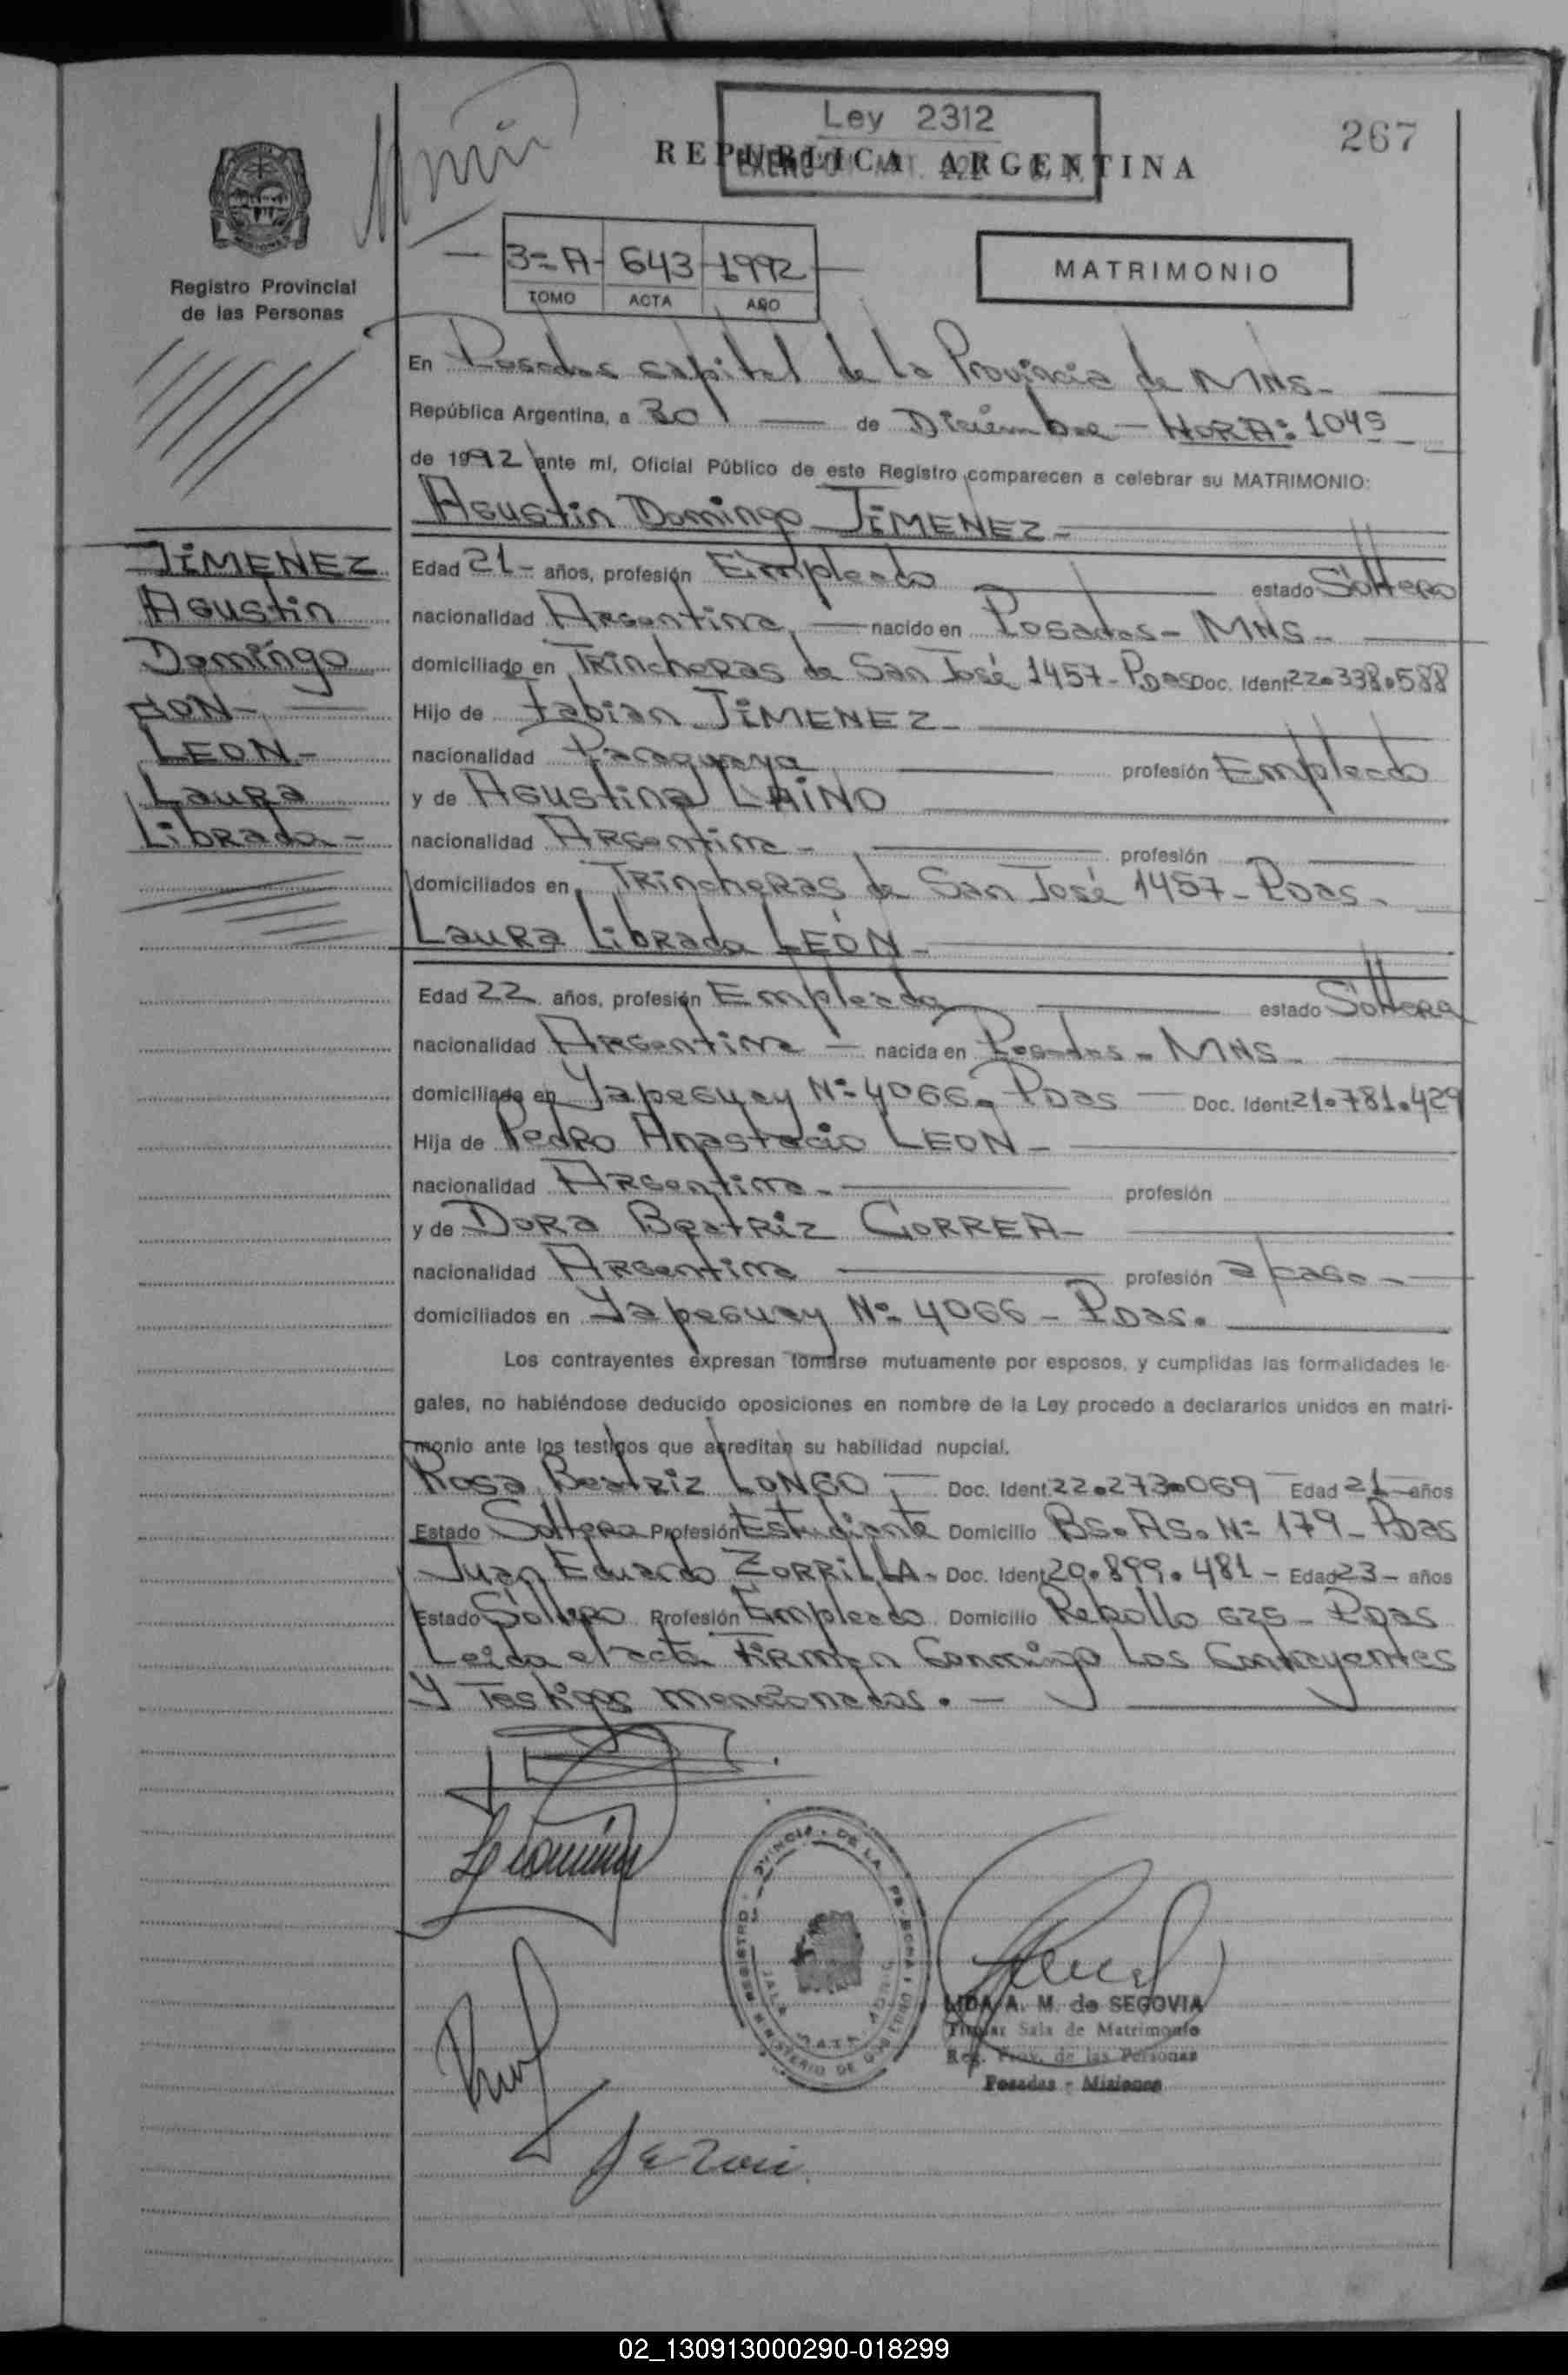 Ley 2312
267
REPUBLICA ARGENTINA
3= A- 643 -1992
TOMO ACTA AÑO
MATRIMONIO
Registro Provincial
de las Personas
En Posadas capital de la Provincia de MNS-
República Argentina, a 30 — de Diciembre - HORA: 1045
de 1992 ante mí, Oficial Público de este Registro comparecen a celebrar su MATRIMONIO:
Agustin Domingo JiMENEZ-
JiMENEZ
Agustin
Domingo
CON-
LEON-
Laura
Librada-
Edad 21- años, profesión Empleado estado Soltero
nacionalidad Argentina, — nacido en Posadas- MNS-
domiciliado en Trincheras de San José 1457- Pdas Doc. Ident 22.338.588
Hijo de Fabian JiMENEZ-
nacionalidad Paraguaya profesión Empleado
y de Agustina LAiNO
nacionalidad Argentina- profesión —
domiciliados en Trincheras de San José 1457- Pdas-
Laura Librada LEÓN-
Edad 22 años, profesión Empleada estado Soltera
nacionalidad Argentina — nacida en Posadas- MNS-
domiciliada en Yapeguay Nº 4066- Pdas — Doc. Ident. 21.781.429
Hija de Pedro Anastacio LEON-
nacionalidad Argentina- profesión
y de Dora Beatriz CORREA-
nacionalidad Argentina profesión a/casa-
domiciliados en Yapeguay Nº 4066- Pdas.
Los contrayentes expresan tomarse mutuamente por esposos, y cumplidas las formalidades le-
gales, no habiéndose deducido oposiciones en nombre de la Ley procedo a declararlos unidos en matri-
monio ante los testigos que acreditan su habilidad nupcial.
Rosa Beatriz LONGO — Doc. Ident. 22.273.069 Edad 21 años
Estado Soltera Profesión Estudiante Domicilio Bs. As. Nº 179- Pdas
Juan Eduardo ZORRiLLA- Doc. Ident 20.899.481- Edad 23- años
Estado Soltero Profesión Empleado Domicilio 625- Pdas
Leida el acta Firman Conmigo Los Contrayentes
Y Testigos mencionados. —
LIDA A. M. de SEGOVIA
Titular Sala de Matrimonio
Reg. Prov. de las Personas
Posadas - Misiones
02_130913000290-018299